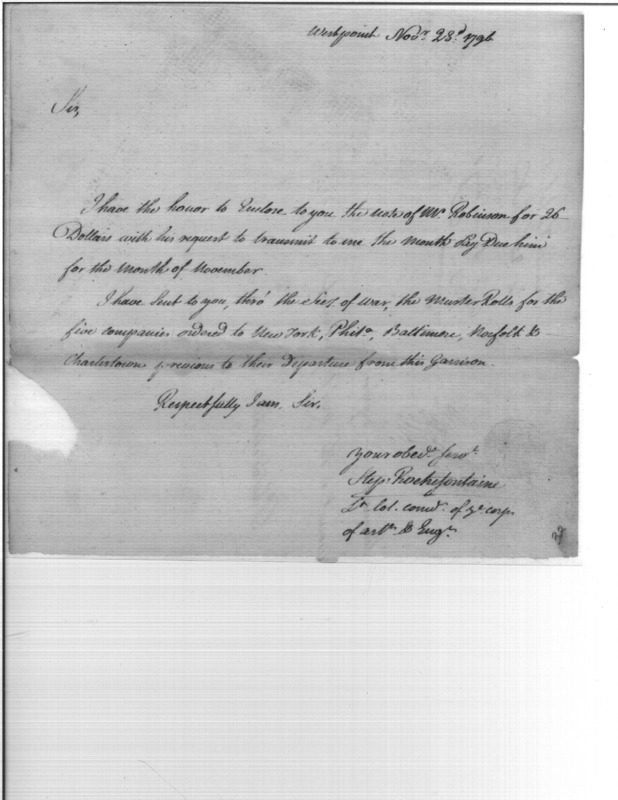 Westpoint Novr. 23d. 1796
Sir,
I have the honor to Enclose to you the note of Mr. Robinson for 26
Dollars with his request to transmit to me the Month Pay Due him
for the Month of November.
I have Sent to you, thro' the Secy. of War, the Muster Rolls for the
five companies ordered to New York, Phila., Baltimore, Norfolk &
Charlestown previous to their Departure from this Garrison.
Respectfully I am, Sir,
your obedt. Servt.
Step. Rochefontaine
Lt. Col. comdt. of ye corps
of artts. & Engrs.